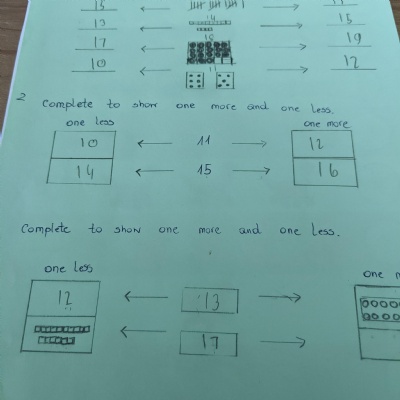 15
13 14 15
17 18 19
10 11 12
2 Complete to show one more and one less.
one less one more
10 11 12
14 15 16
Complete to show one more and one less.
one less one
12 13
17